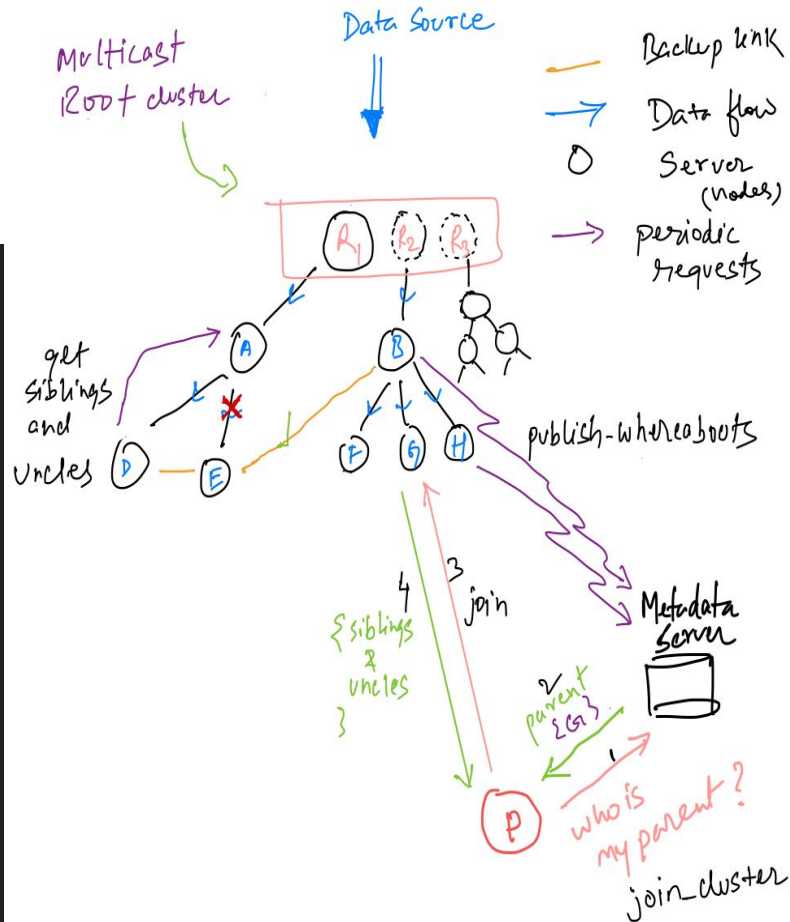 Data Source
Multicast
Root cluster
Backup link
Data flow
Server
(nodes)
periodic
requests
R1
R2
R3
A
B
get
siblings
and
uncles
D
E
F
G
H
publish-whereabouts
4
3
join
{siblings
&
uncles
}
Metadata
Server
2
parent
{G}
1
P
who is
my parent?
join_cluster